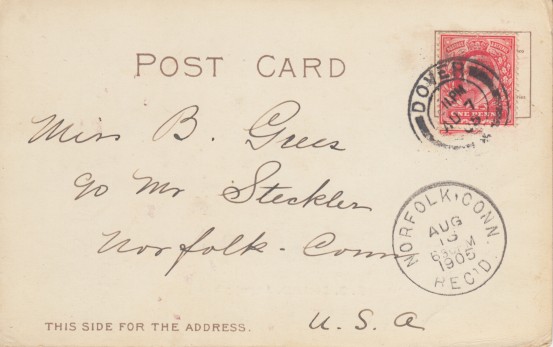 POST CARD
ONE PENNY
DOVER
11 PM
AU 7
05
Miss B. Grees
c/o Mr Steckler
Norfolk - Conn
NORFOLK, CONN.
AUG
1905
REC'D.
THIS SIDE FOR THE ADDRESS.
U.S.A